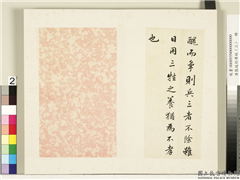 醜而爭則兵三者不除雖
日用三牲之養猶為不孝
也